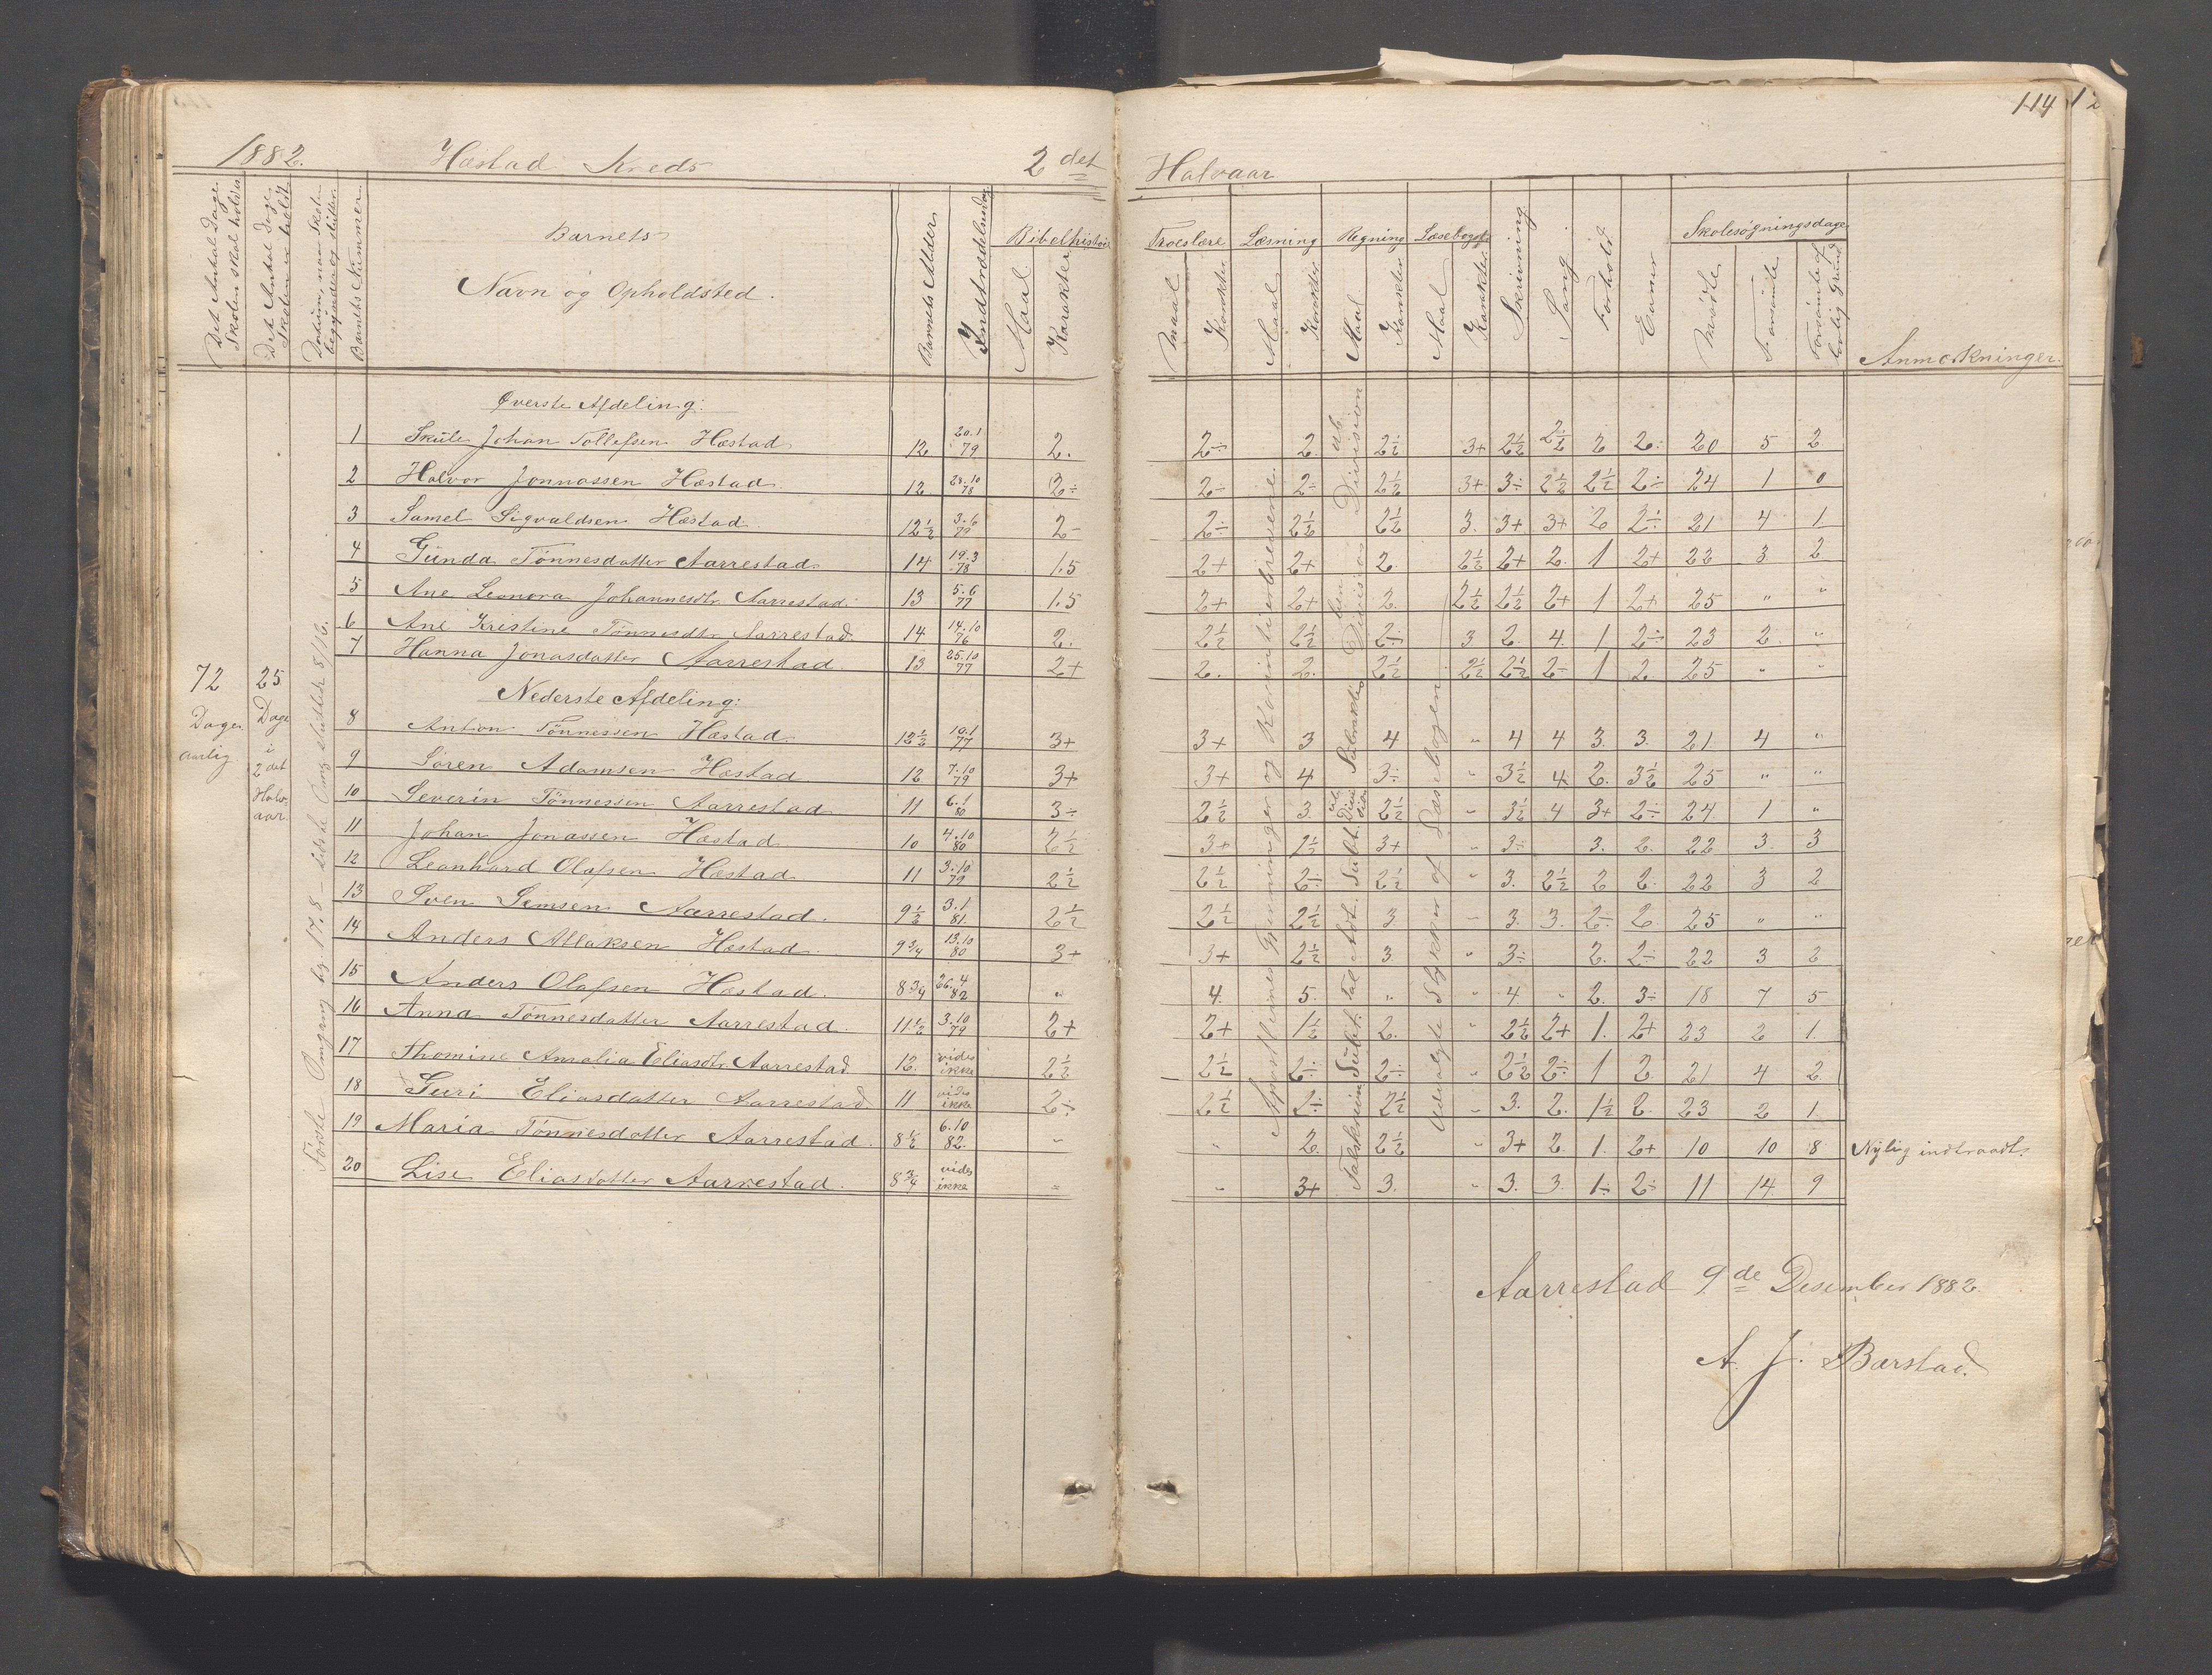 114
1882. Hæstad Kreds 2det Halvaar
Det Antal Dage Skolen skal holdes
Det Antal Dage Skolen er holdt
Datum, naar Skolen begynder og slutter
Barnets Nummer
Barnets
Navn og Opholdsted.
Barnets Alder
Indtrædelsesdag
Bibelhistorie Maal Karakter
Troeslære Maal Karakter
Læsning Maal Karakter
Regning Maal Karakter
Læsebogen Maal Karakter
Skrivning
Sang.
Forhold.
Evner
Skolesøgningsdage
Mødte
Forsømte
Forsømte af lovlig Grund
Anmærkninger.
72 Dage aarlig
25 Dage i 2det Halvaar
Første Omgang beg. 17.8 - sidste Omg. sluttede 8/12.
Øverste Afdeling:
1 Skule Johan Tollefsen Hæstad 12 20.1 79 2. 2÷ 2. 2½ 3+ 2½ 2½ 2 2÷ 20 5 2
2 Halvor Jonnassen Hæstad. 12 28.10 78 2÷ 2÷ 2÷ 2½ 3+ 3÷ 2½ 2½ 2÷ 24 1 0
3 Samel Sigvaldsen Hæstad. 12½ 3.6 79 2÷ 2÷ 2½ 2½ 3. 3+ 3+ 2 2÷ 21 4 1
4 Gunda Tønnesdatter Aarrestad. 14 19.3 78 1.5 2+ 2+ 2. 2½ 2+ 2. 1 2+ 22 3 2
5 Ane Leonora Johannesdtr. Aarrestad. 13 5.6 77 1.5 2+ 2+ 2. 2½ 2½ 2+ 1 2+ 25 " "
6 Ane Kristine Tønnesdtr. Aarrestad. 14 14.10 76 2. 2½ 2½ 2÷ 3 2. 4. 1 2÷ 23 2. "
7 Hanna Jonasdatter Aarrestad 13 25.10 77 2+ 2. 2. 2½ 2½ 2½ 2÷ 1 2. 25 " "
Nederste Afdeling:
8 Anton Tønnessen Hæstad. 12½ 10.1 77 3+ 3+ 3 4 " 4 4 3. 3. 21 4 "
9 Søren Adamsen Hæstad 12 7.10 79 3+ 3+ 4 3÷ " 3½ 4. 2. 3½ 25 " "
10 Severin Tønnessen Aarrestad 11 6.1 80 3÷ 2½ 3. 2½ " 3½ 4 3+ 2÷ 24. 1 "
11 Johan Jonassen Hæstad 10 4.10 80 2½ 3+ 2½ 3+ " 3÷ 3. 2. 22 3. 3
12 Leonhard Olafsen Hæstad 11 3.10 79 2½ 2½ 2÷ 2½ " 3. 2½ 2 2. 22 3 2
13 Sven Semsen Aarrestad. 9½ 3.1 81. 2½ 2½ 2½ 3. " 3. 3. 2÷ 2. 25 " "
14 Anders Atlaksen Hæstad. 9¾ 13.10 80 3+ 3+ 2½ 3. " 3÷ 2. 2÷ 22 3 2
15 Anders Olafsen Hæstad. 8¾ 26.4 82 " 4. 5. " " 4. " 2. 3÷ 18 7 5
16 Anna Tønnesdatter Aarrestad. 11½ 3.10 79 2+ 2+ 1½ 2. " 2½ 2+ 1. 2+ 23 2 1.
17 Thomine Amalia Eliasdtr. Aarrestad 12. vides ikke 2½ 2½ 2÷ 2÷ " 2½ 2÷ 1 2 21 4 2
18 Guri Eliasdatter Aarrestad 11 vides ikke 2÷ 2½ 2÷ 2½ " 3. 2. 1½ 2. 23 2 1
19 Maria Tønnesdatter Aarrestad. 8½ 6.10 82. " " 2. 2½ " 3+ 2. 1. 2+ 10 10 8 Nylig indtraadt.
20 Lise Eliasdatter Aarrestad. 8¾ vides ikke " " 3+ 3. " 3. 3. 1÷ 2÷ 11 14. 9
Apostlernes Gjerninger og Korintierbrevene.
Talskrivn. Subt. Tal Adt. Subt.
Division
Udvalgte Stykker af Læsebogen
Aarrestad 9de Desember 1882.
A. J. Barstad.